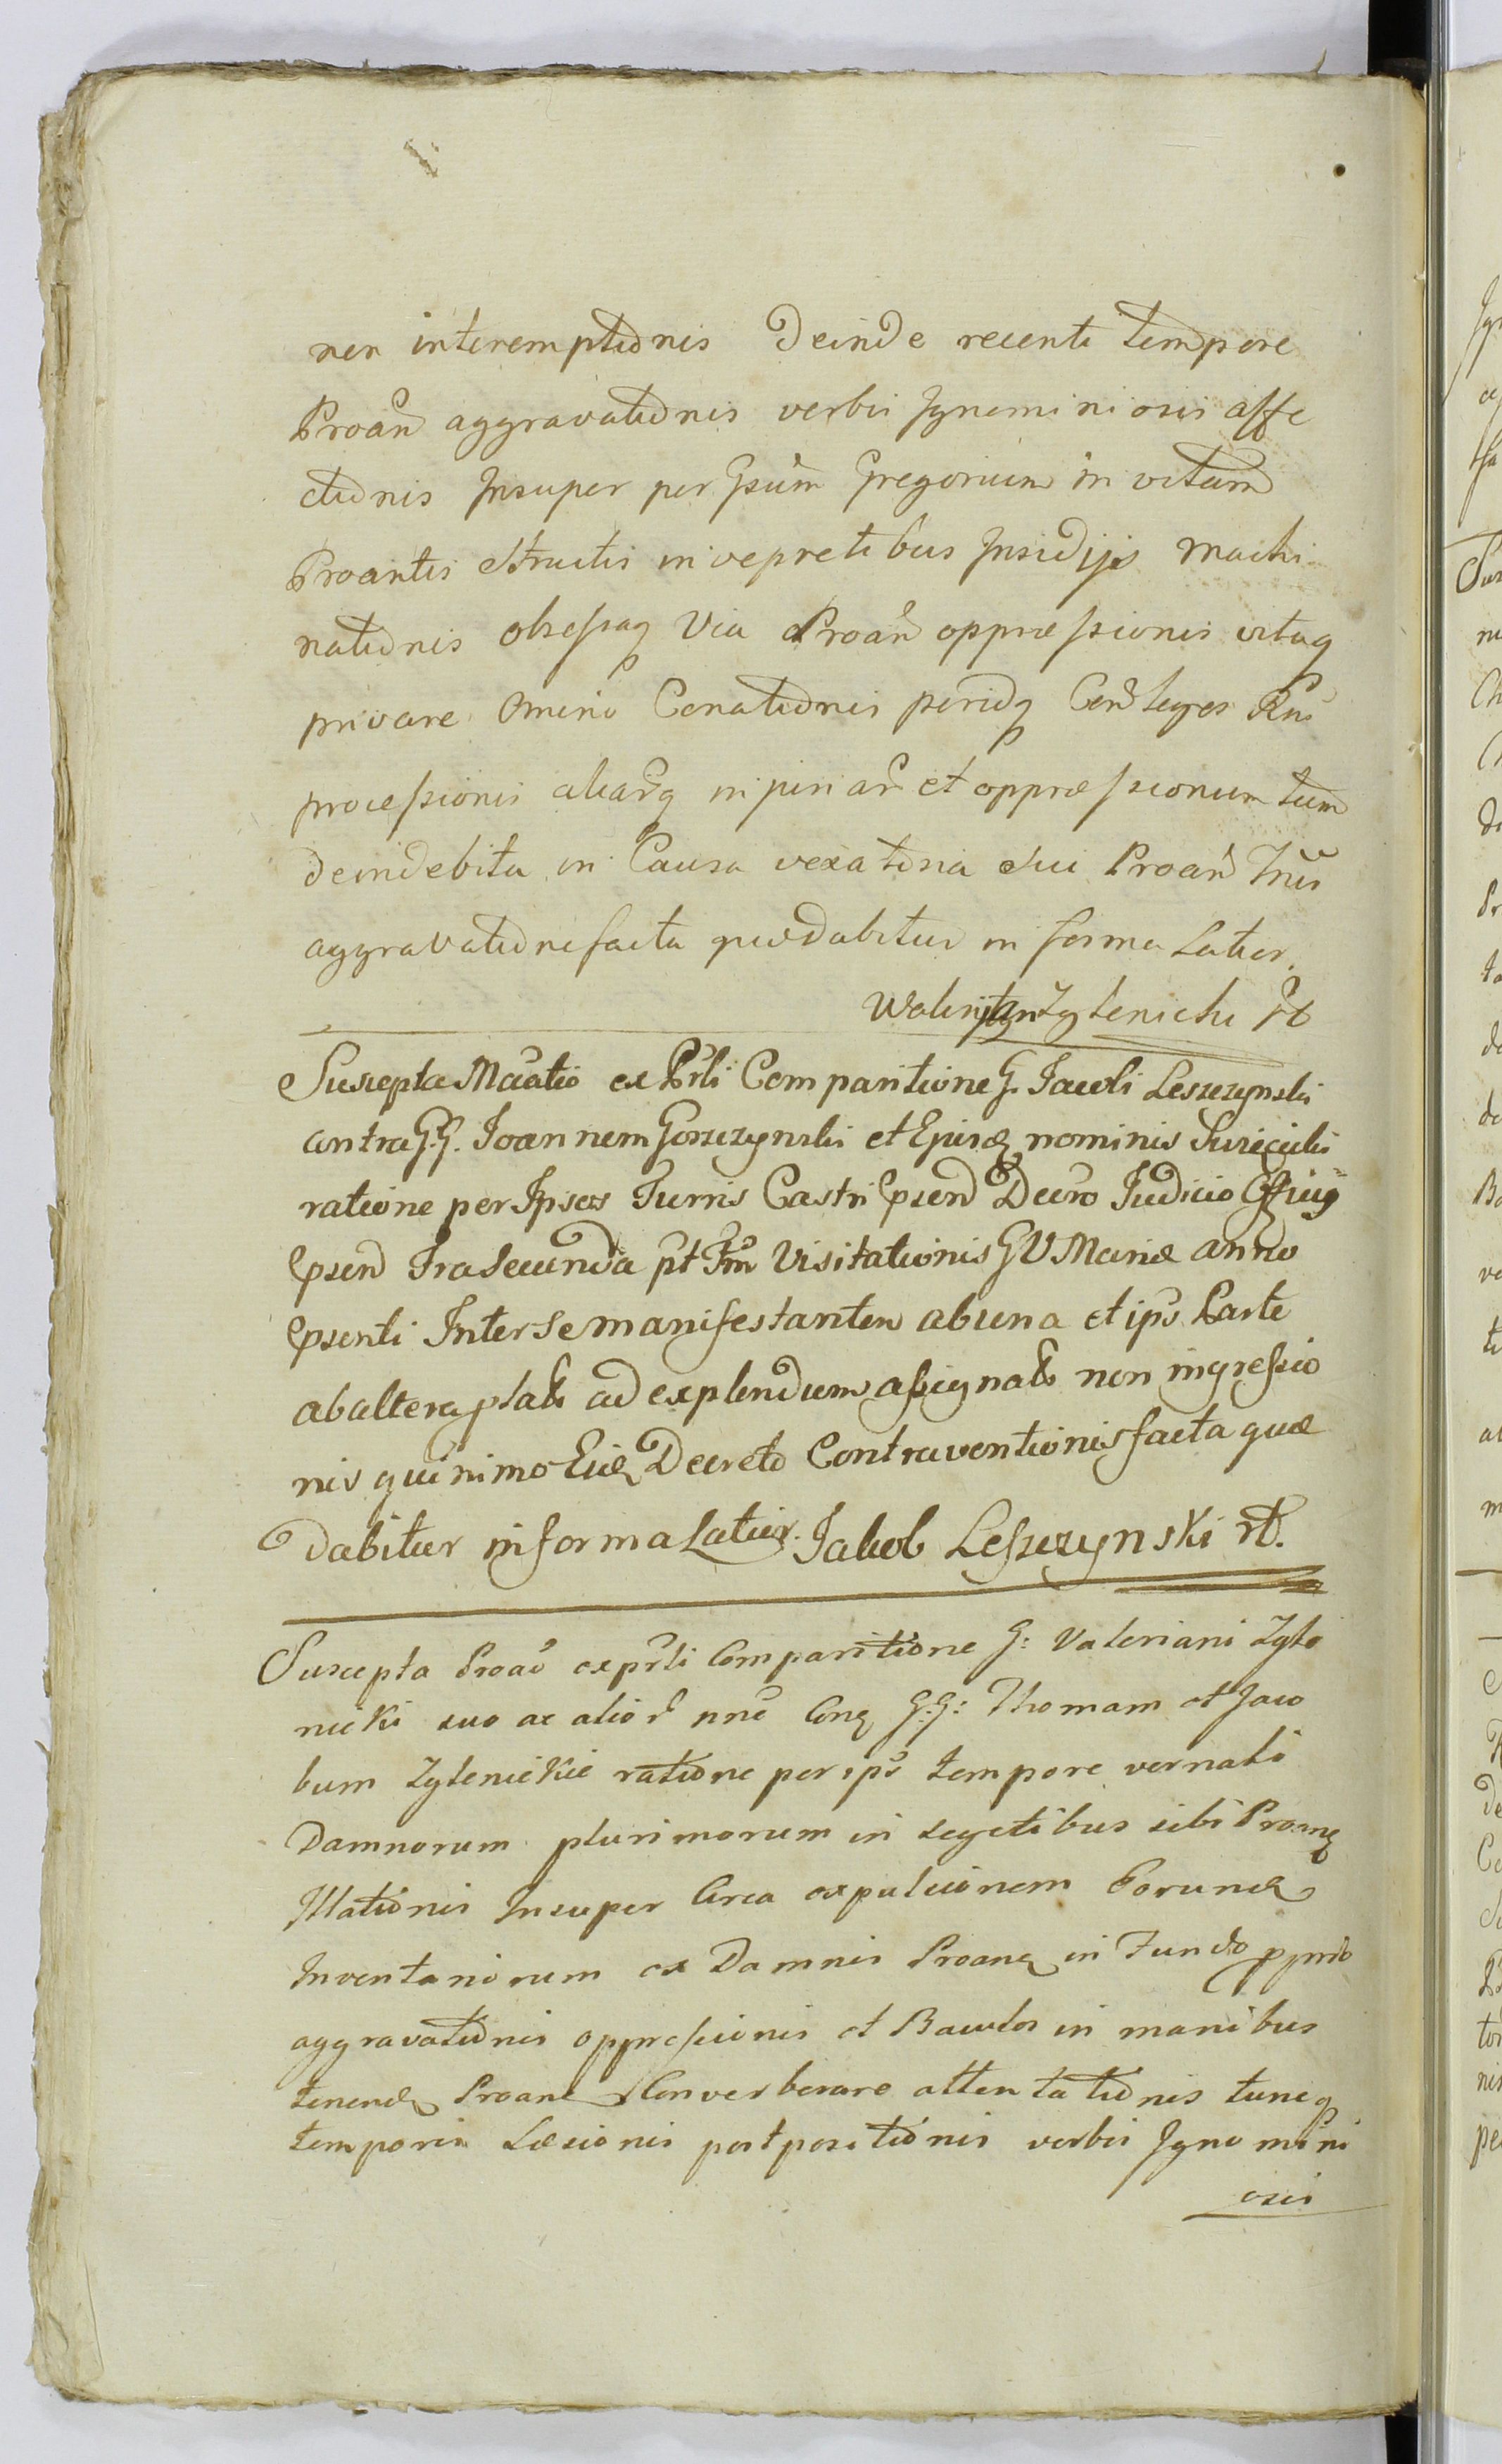 nen interemptionis Deinde recenti tempore
Proañ aggravationis verbis Ignominiosis affe
ctionis Insuper per Ipsum Gregorium in vitam
Proantis structis in vepretibus Insidijs machi
nationis obsessaq Via Proañ oppressionis vitaq
privare omnino Conationis
processionis aliarq injuriar et oppressionum tum
de indebita in Causa vexatoria sui Proañ
aggravatione facta quæ dabitur in forma Latior.
Suscepta Maatio ex Prli Comparitione G. Iacobi Leszczynski
contra G.G. Ioannem Goszczynski et Ejusq nominis
ratione per Ipsos Turris Castri Decro Iudicio
Fra Secunda pt Fm Visitationis G V Mariæ anno
Inter se manifestantem ab una et ips Parte
ab altera ad explendum assignato non ingressio
nis quinimo Decreto Contraventionis facta quæ
Dabitur in forma Latior. Jakob Leszczynski
Suscepta Proao ex prli Comparitione G: Valeriani Zyto
nicki suo ac alior nne G:G: Thomam et Jaco
bum Zytenickie ratione per ips tempore vernali
Damnorum plurimorum in segetibus sibi Proanq
Illationis Insuper Circa expulsionem
Inventariorum ex Damnis Proanq in Fundo
aggravationis oppressionis et Baculos in manibus
Proane Converberare attentationis tuncq
temporis Læsionis postpositionis verbis Ignomini
osis